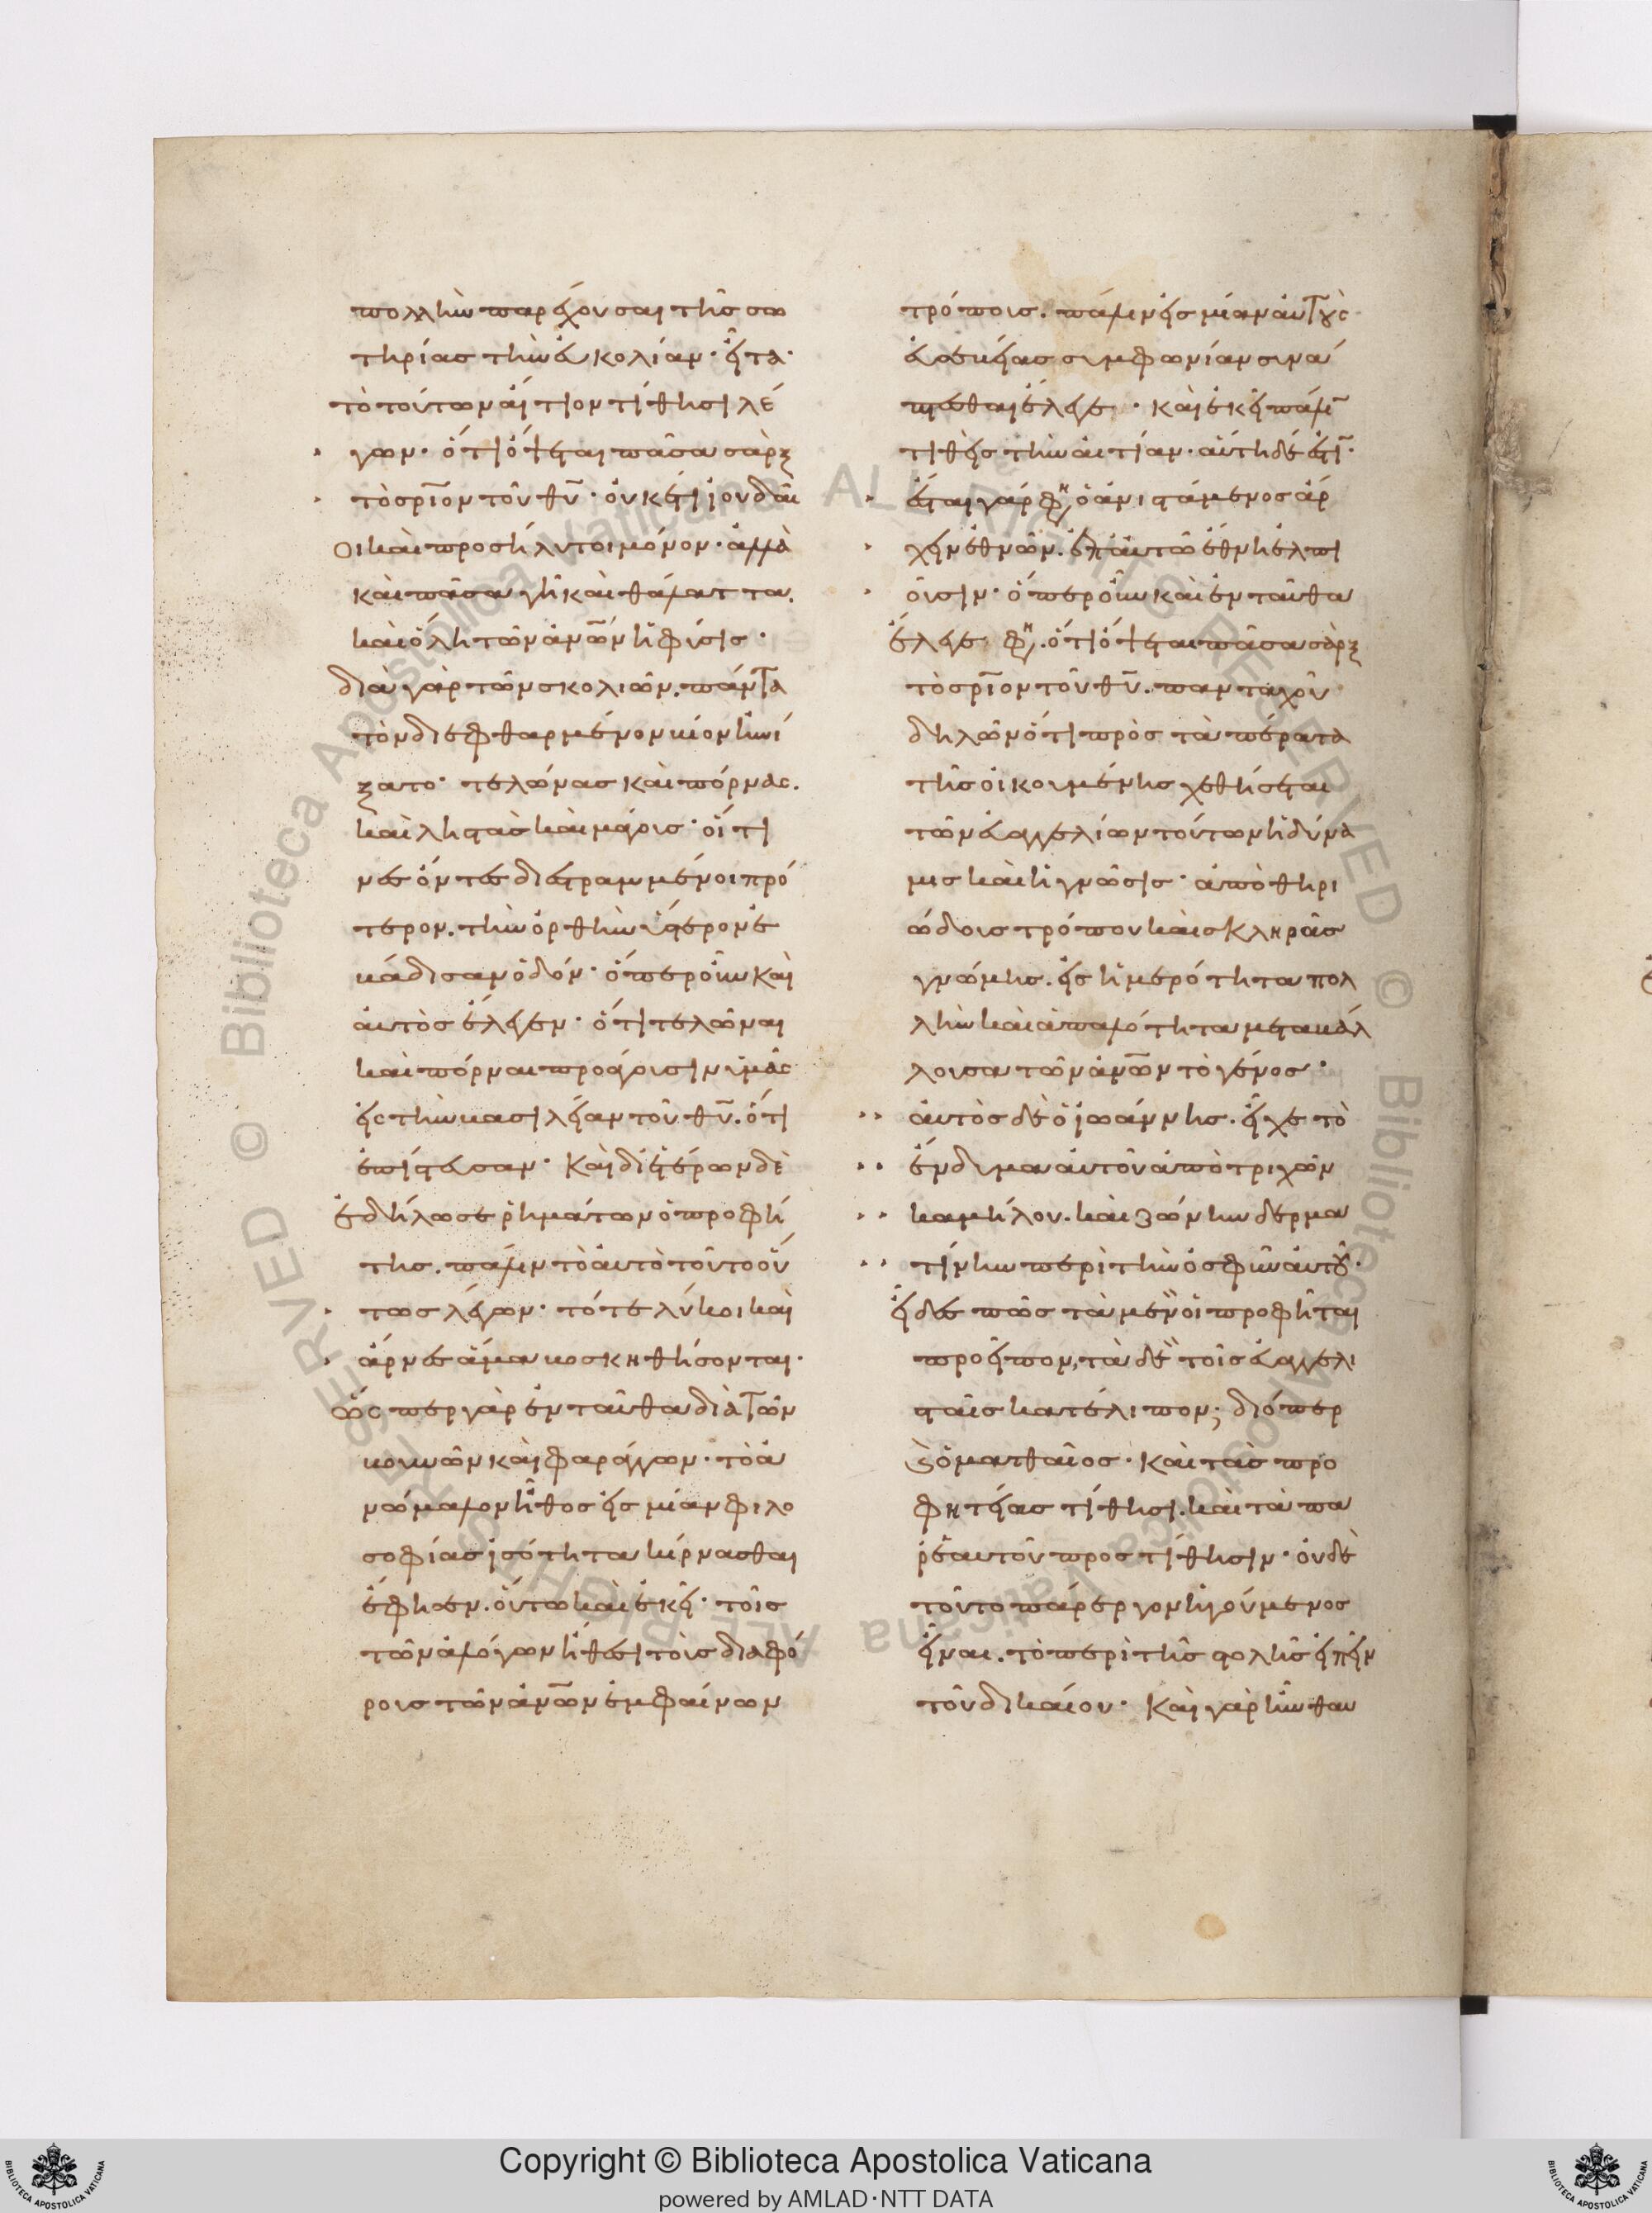 πολλὴν παρέχουσαι τῆς σω
τηρίας τὴν εὐκολίαν· εἶτα
τὸ τούτων αἴτιον τίθησι λέ
γων· ὅτι ὄψεται πᾶσα σὰρξ
τὸ σριον τοῦ θυ· οὐκέτι ἰουδαῖ
οι καὶ προσήλυτοι μόνον· ἀλλὰ
καὶ πᾶσα γῆ καὶ θάλαττα.
καὶ ὅλη τῶν ἀνων ἡ φύσις·
διὰ γὰρ τῶν σκολιῶν. πάντα
τὸν διεφθαρμένον βίον ἠνί
ξατο· τελώνας καὶ πόρνας.
καὶ ληστὰς καὶ μάγους· οἵ τι
νες ὄντες διεστραμμένοι πρό
τερον. τὴν ὀρθὴν ὕστερον ἐ
βάδισαν ὁδόν· ὅπερ οὖν καὶ
αὐτὸς ἔλεγεν· ὅτι τελῶναι
καὶ πόρναι προάγουσιν ὑμᾶς
εἰς τὴν βασιλείαν τοῦ θυ. ὅτι
ἐπίστευσαν· Καὶ δι ἑτέρων δὲ
ἐδήλωσε ῥημάτων ὁ προφή
της. πάλιν τὸ αὐτὸ τοῦτο οὕ
τως λέγων· τότε λύκοι καὶ
ἄρνες ἅμα βοσκηθήσονται·
ὥσπερ γὰρ ἐνταῦθα διὰ τῶν
βουνῶν καὶ φαράγγων. τὸ ἀ
νώμαλον ἦθος εἰς μίαν φιλο
σοφίας ἰσότητα κίρνασθαι
ἔφησεν. οὕτω καὶ ἐκεῖ· τοῖς
τῶν ἀλόγων ἤθεσι τοὺς διαφό
ρους τῶν ἀνων ἐμφαίνων
τρόπους. πάλιν εἰς μίαν αὐτοὺς
εὐσεβείας συμφωνίαν συνά
πτεσθαι ἔλεγε· καὶ ἐκεῖ πάλιν
τιθεὶς τὴν αἰτίαν· αὕτη δέ ἐστι·
ἔσται γάρ φη ὁ ἀνιστάμενος ἄρ
χειν ἐθνῶν. ἐπ αὐτῶ ἔθνη ἐλπι
οῦσιν· ὅπερ οὖν καὶ ἐνταῦθα
ἔλεγε φη. ὅτι ὄψεται πᾶσα σὰρξ
τὸ σριον τοῦ θυ. πανταχοῦ
δηλῶν ὅτι πρὸς τὰ πέρατα
τῆς οἰκουμένης χεθήσεται
τῶν εὐαγγελίων τούτων ἡ δύνα
μις καὶ ἡ γνῶσις· ἀπὸ θηρι
ώδους τρόπου καὶ σκληρᾶς
γνώμης. εἰς ἡμερότητα πολ
λὴν καὶ ἁπαλότητα μεταβάλ
λουσα τῶν ἀνων τὸ γένος·
αὐτὸς δὲ ὁ ἰωάννης. εἶχε τὸ
ἔνδυμα αὐτοῦ ἀπὸ τριχῶν
καμήλου. καὶ ζώνην δερμα
τίνην περὶ τὴν ὀσφὺν αὐτοῦ·
εἶδες πῶς τὰ μὲν οἱ προφῆται
προεῖπον, τὰ δὲ τοῖς εὐαγγελι
σταῖς κατέλιπον; διόπερ
ὁ ματθαῖος· καὶ τὰς προ
φητείας τίθησι. καὶ τὰ πα
ρ ἑαυτοῦ προστίθησιν· οὐδὲ
τοῦτο πάρεργον ἡγούμενος
εἶναι. τὸ περὶ τῆς στολῆς εἰπεῖν
τοῦ δικαίου· Καὶ γὰρ ἦν θαυ